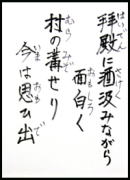 はいでん さけく
拝殿に酒汲みながら
おもしろ
面白く
むら みぞ
村の溝せり
いま おも で
今は思ひ出